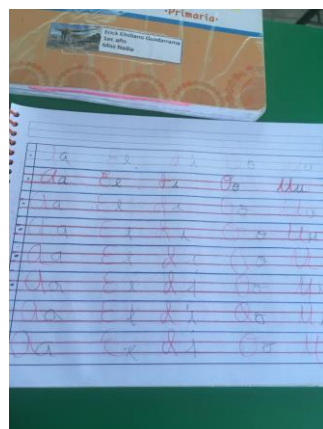 ·Primaria·
Erick Emiliano Guadarrama
1er. año
Miss Nadia
Aa Ee Ii Oo Uu
Aa Ee Ii Oo Uu
Aa Ee Ii Oo Uu
Aa Ee Ii Oo Uu
Aa Ee Ii Oo
Aa Ee Ii Oo
Aa Ee Ii Oo
Aa Ee Ii Oo U